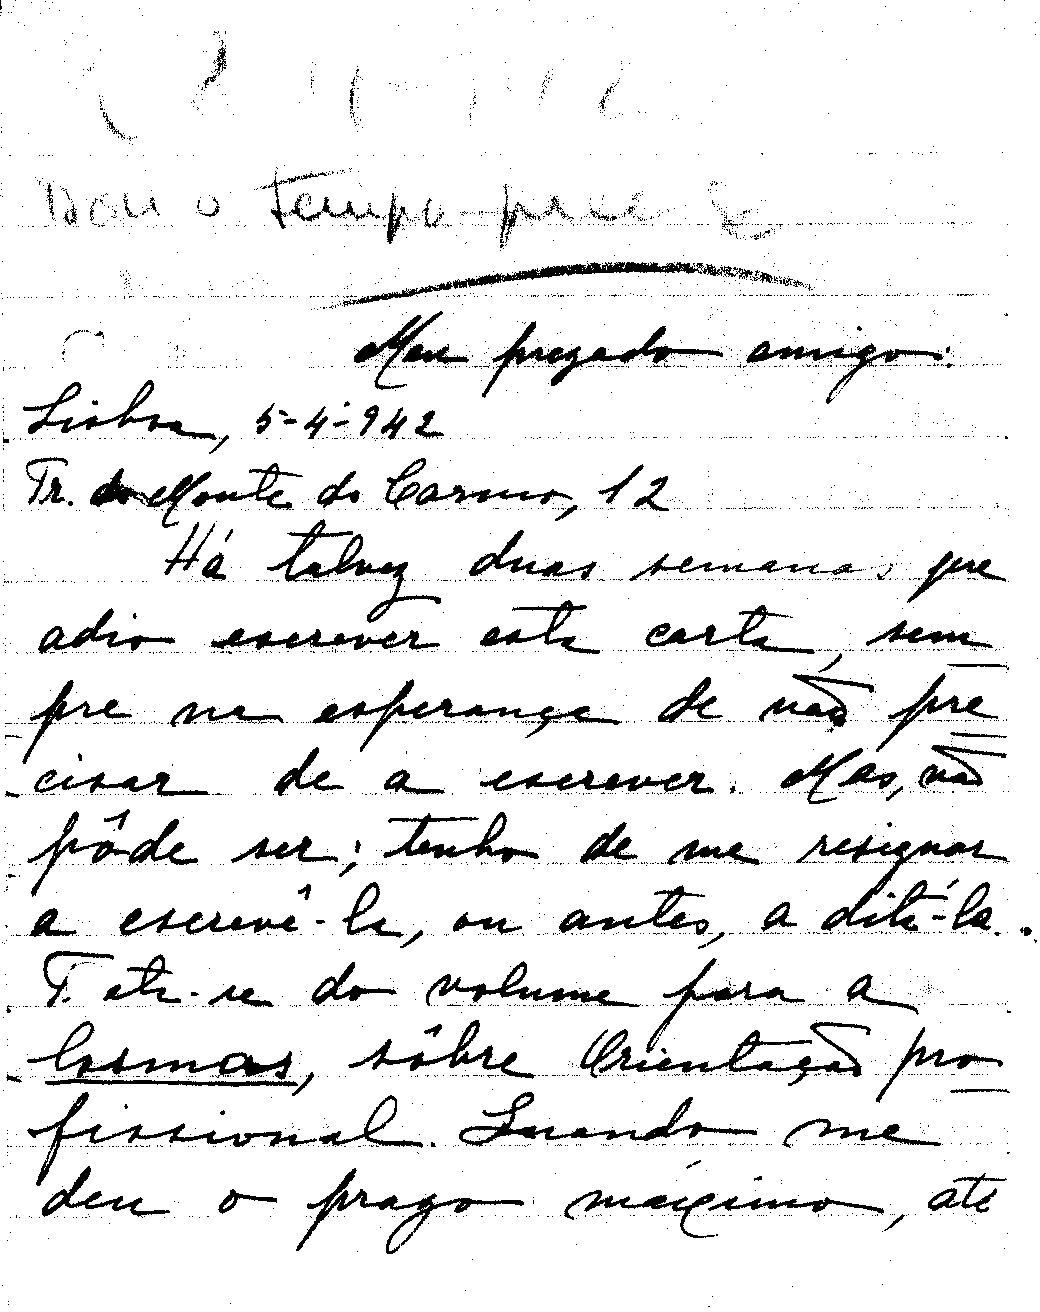 Dou o tempo
Meu prezado amigo:
Lisboa, 5-4-942
Tr. do Monte do Carmo, 12
Há talvez duas semanas que
adio escrever esta carta, sem
pre na esperança de não pre
cisar de a escrever. Mas, não
pôde ser; tenho de me resignar
a escrevê-la, ou antes, a ditá-la.
Trata-se do volume para a
Cosmos, sôbre Orientação pro
fissional. Quando me
deu o prazo máximo, até